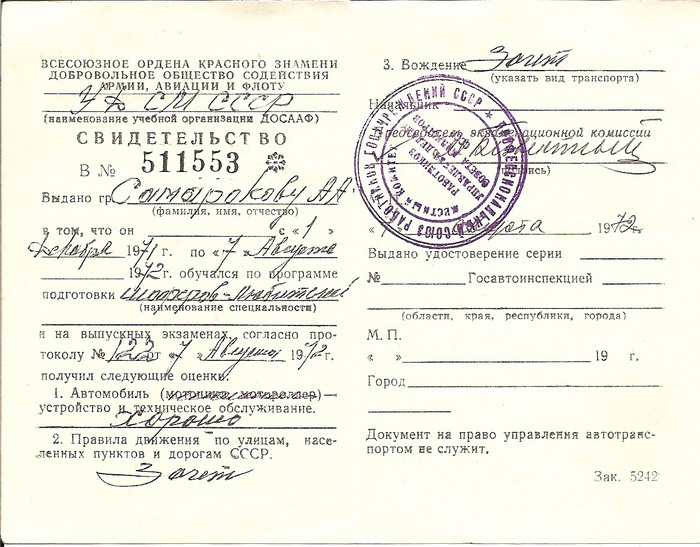 ВСЕСОЮЗНОЕ ОРДЕНА КРАСНОГО ЗНАМЕНИ
ДОБРОВОЛЬНОЕ ОБЩЕСТВО СОДЕЙСТВИЯ
АРМИИ, АВИАЦИИ И ФЛОТУ
СМ СССР
(наименование учебной организации ДОСААФ)
СВИДЕТЕЛЬСТВО
В № 511553
Выдано гр.
(фамилия, имя, отчество)
в том, что он с «1»
декабря 1971 г. по «7» Августа
1972 г. обучался по программе
подготовки шоферов-любителей
(наименование специальности)
и на выпускных экзаменах, согласно про-
токолу № 122 от «7» Августа 1972 г.
получил следующие оценки:
1. Автомобиль (мотоцикл, мотороллер)—
устройство и техническое обслуживание.
хорошо
2. Правила движения по улицам, насе-
ленных пунктов и дорогам СССР.
Зачет
3. Вождение Зачет
(указать вид транспорта)
Начальник
Председатель экзаменационной комиссии
(подпись)
августа 1972 г.
Выдано удостоверение серии
№ Госавтоинспекцией
(области, края, республики, города)
М. П.
« » 19 г.
Город
Документ на право управления автотранс-
портом не служит.
Зак. 5242
ПРОФЕССИОНАЛЬНЫЙ СОЮЗ РАБОТНИКОВ ГОСУЧРЕЖДЕНИЙ СССР
МЕСТНЫЙ КОМИТЕТ